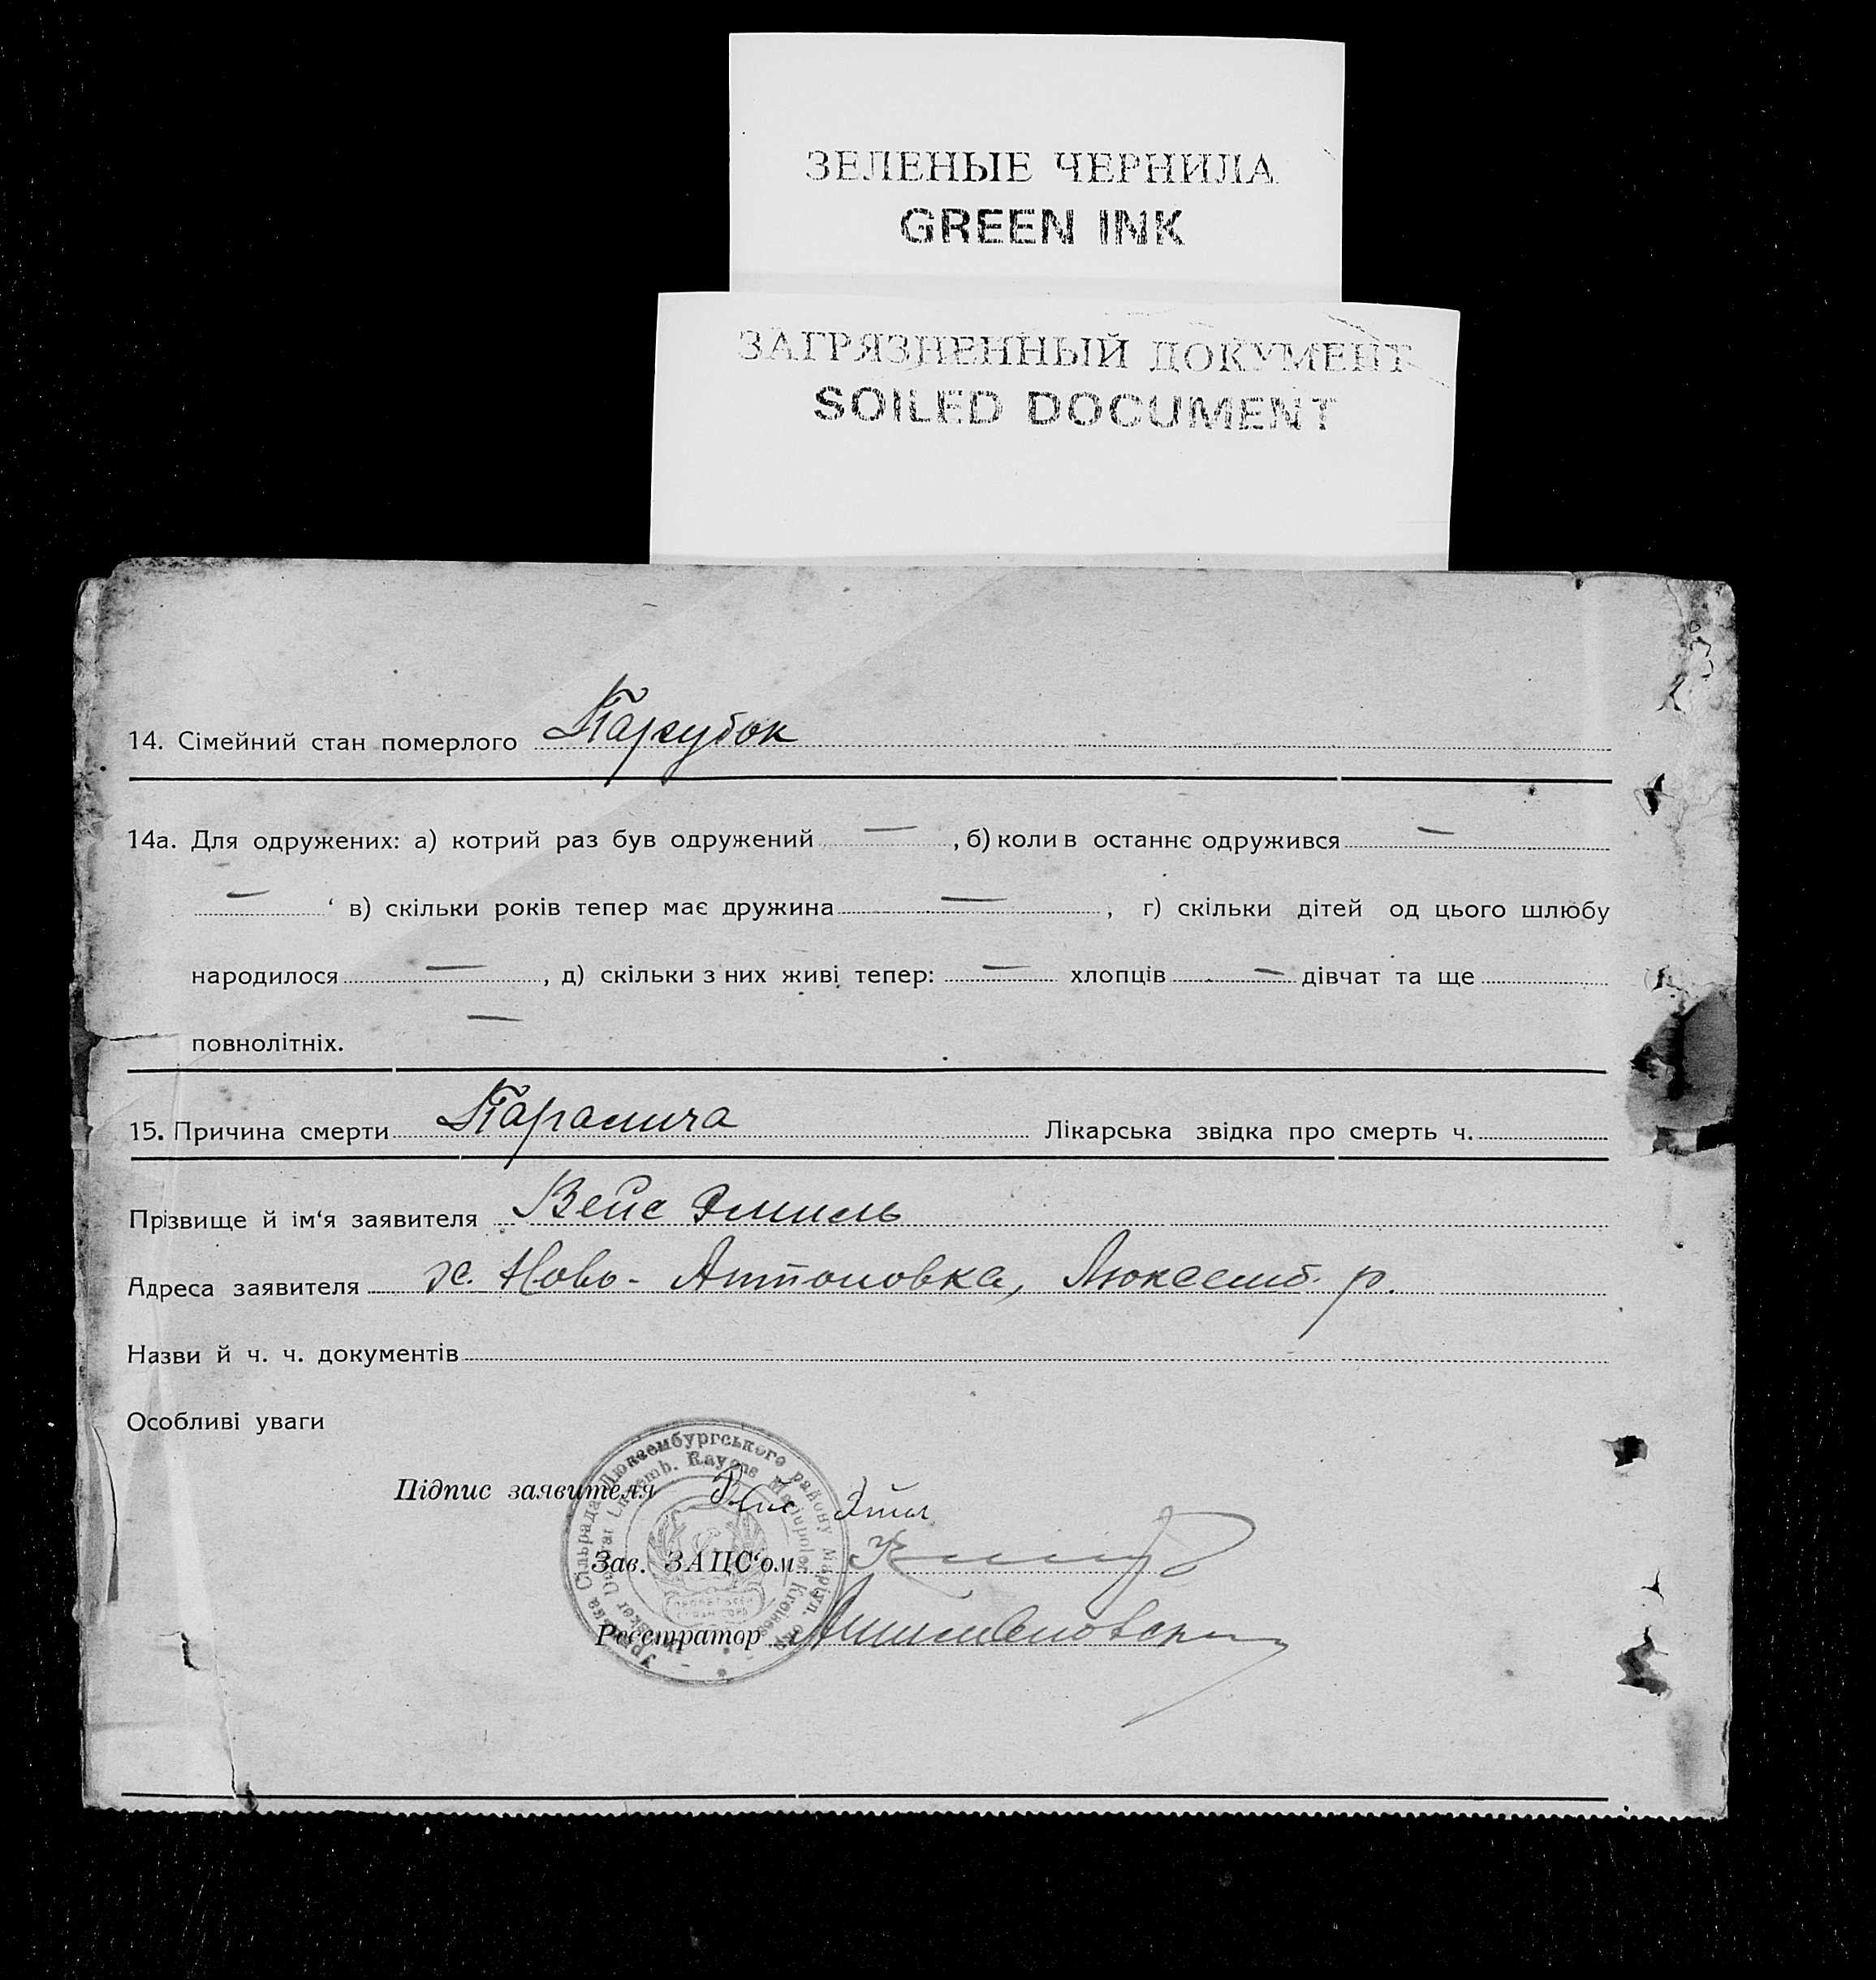 ЗЕЛЕНЫЕ ЧЕРНИЛА
GREEN INK
ЗАГРЯЗНЕННЫЙ ДОКУМЕНТ
SOILED DOCUMENT
14. Сімейний стан померлого Парубок
14а. Для одружених: а) котрий раз був одружений — , б) коли в останнє одружився —
— ‘ в) скільки років тепер має дружина — , г) скільки дітей од цього шлюбу
народилося — , д) скільки з них живі тепер: — хлопців — дівчат та ще
повнолітніх. —
15. Причина смерти Лікарська звідка про смерть ч.
Прізвище й ім‘я заявителя Вейс Эмиль
Адреса заявителя х. Ново-Антоновка, Люксемб. р.
Назви й ч. ч. документів
Особливі уваги
Підпис заявителя
Зав. ЗАЦС‘ом
Реєстратор
Сільрада Люксембургського району Маріуп.
Luxemb. Rayons Mariupoler Kreises